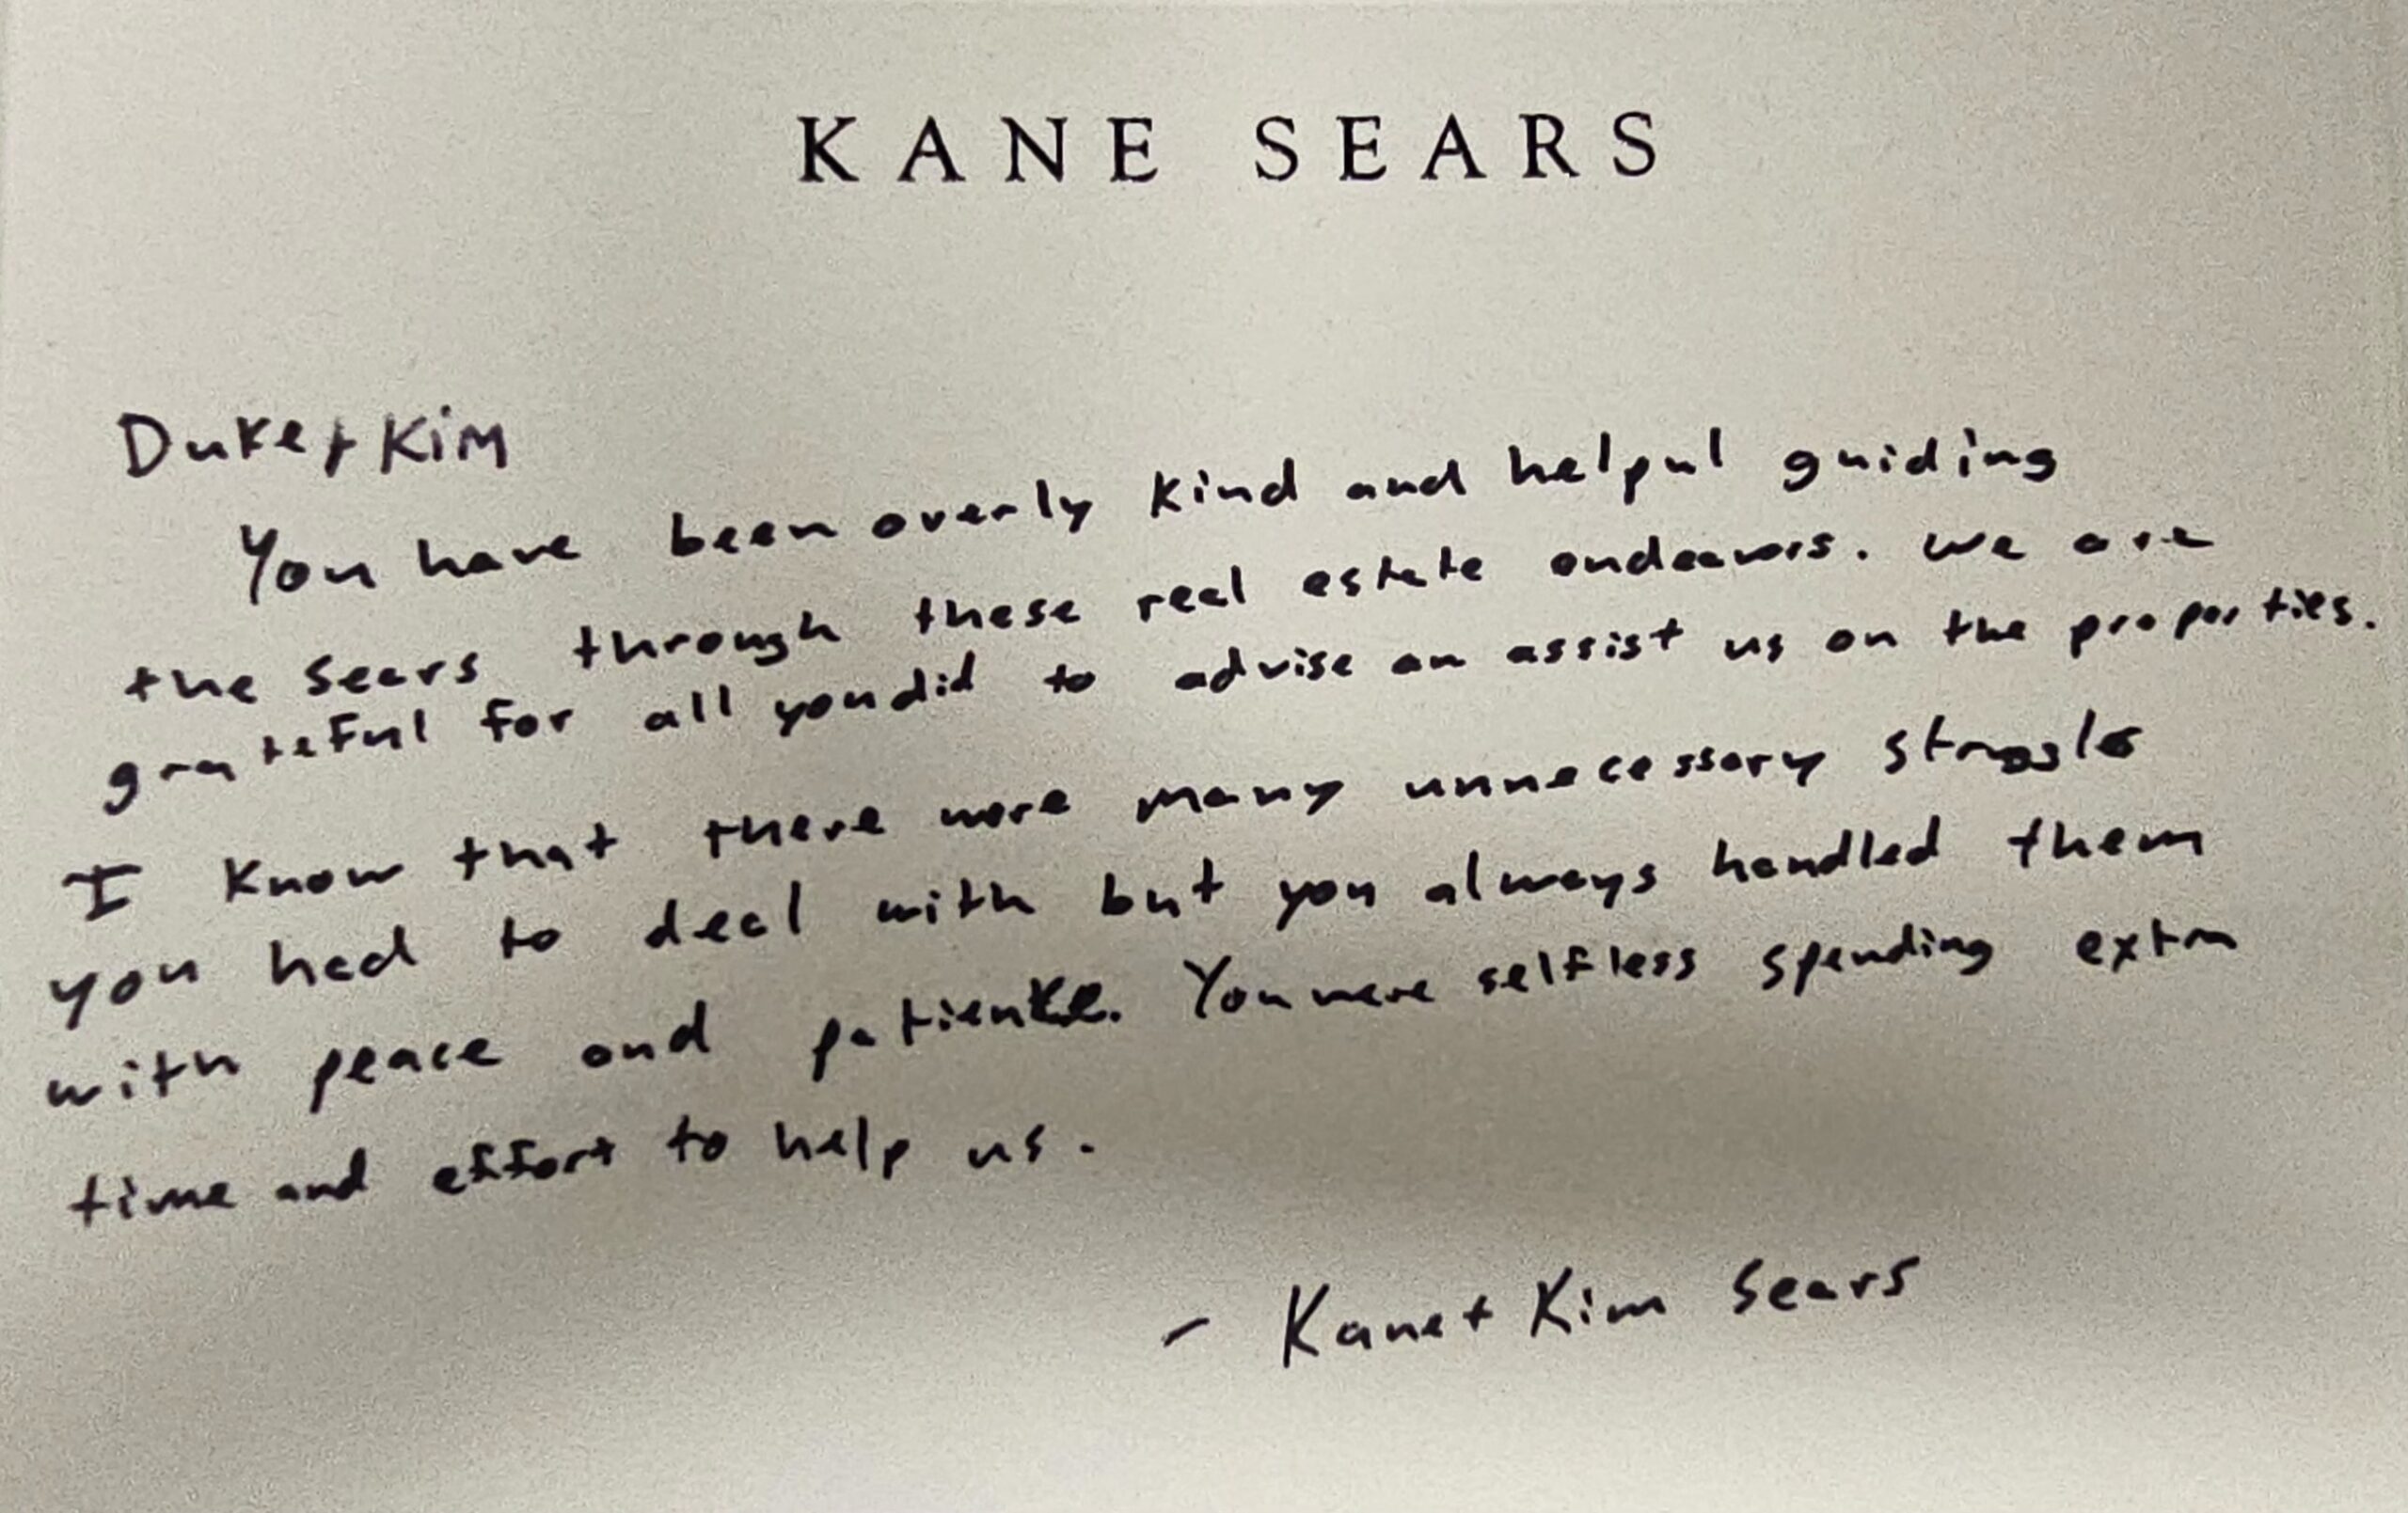 KANE SEARS
Duke + Kim
You have been overly kind and helpul guiding
the Sears through these real estate endeavors. We are
grateful for all you did to advise an assist us on the properties.
I know that there were many unnecessary struggles
you had to deal with but you always handled them
with peace and patience. You were selfless spending extra
time and effort to help us.
- Kane + Kim Sears